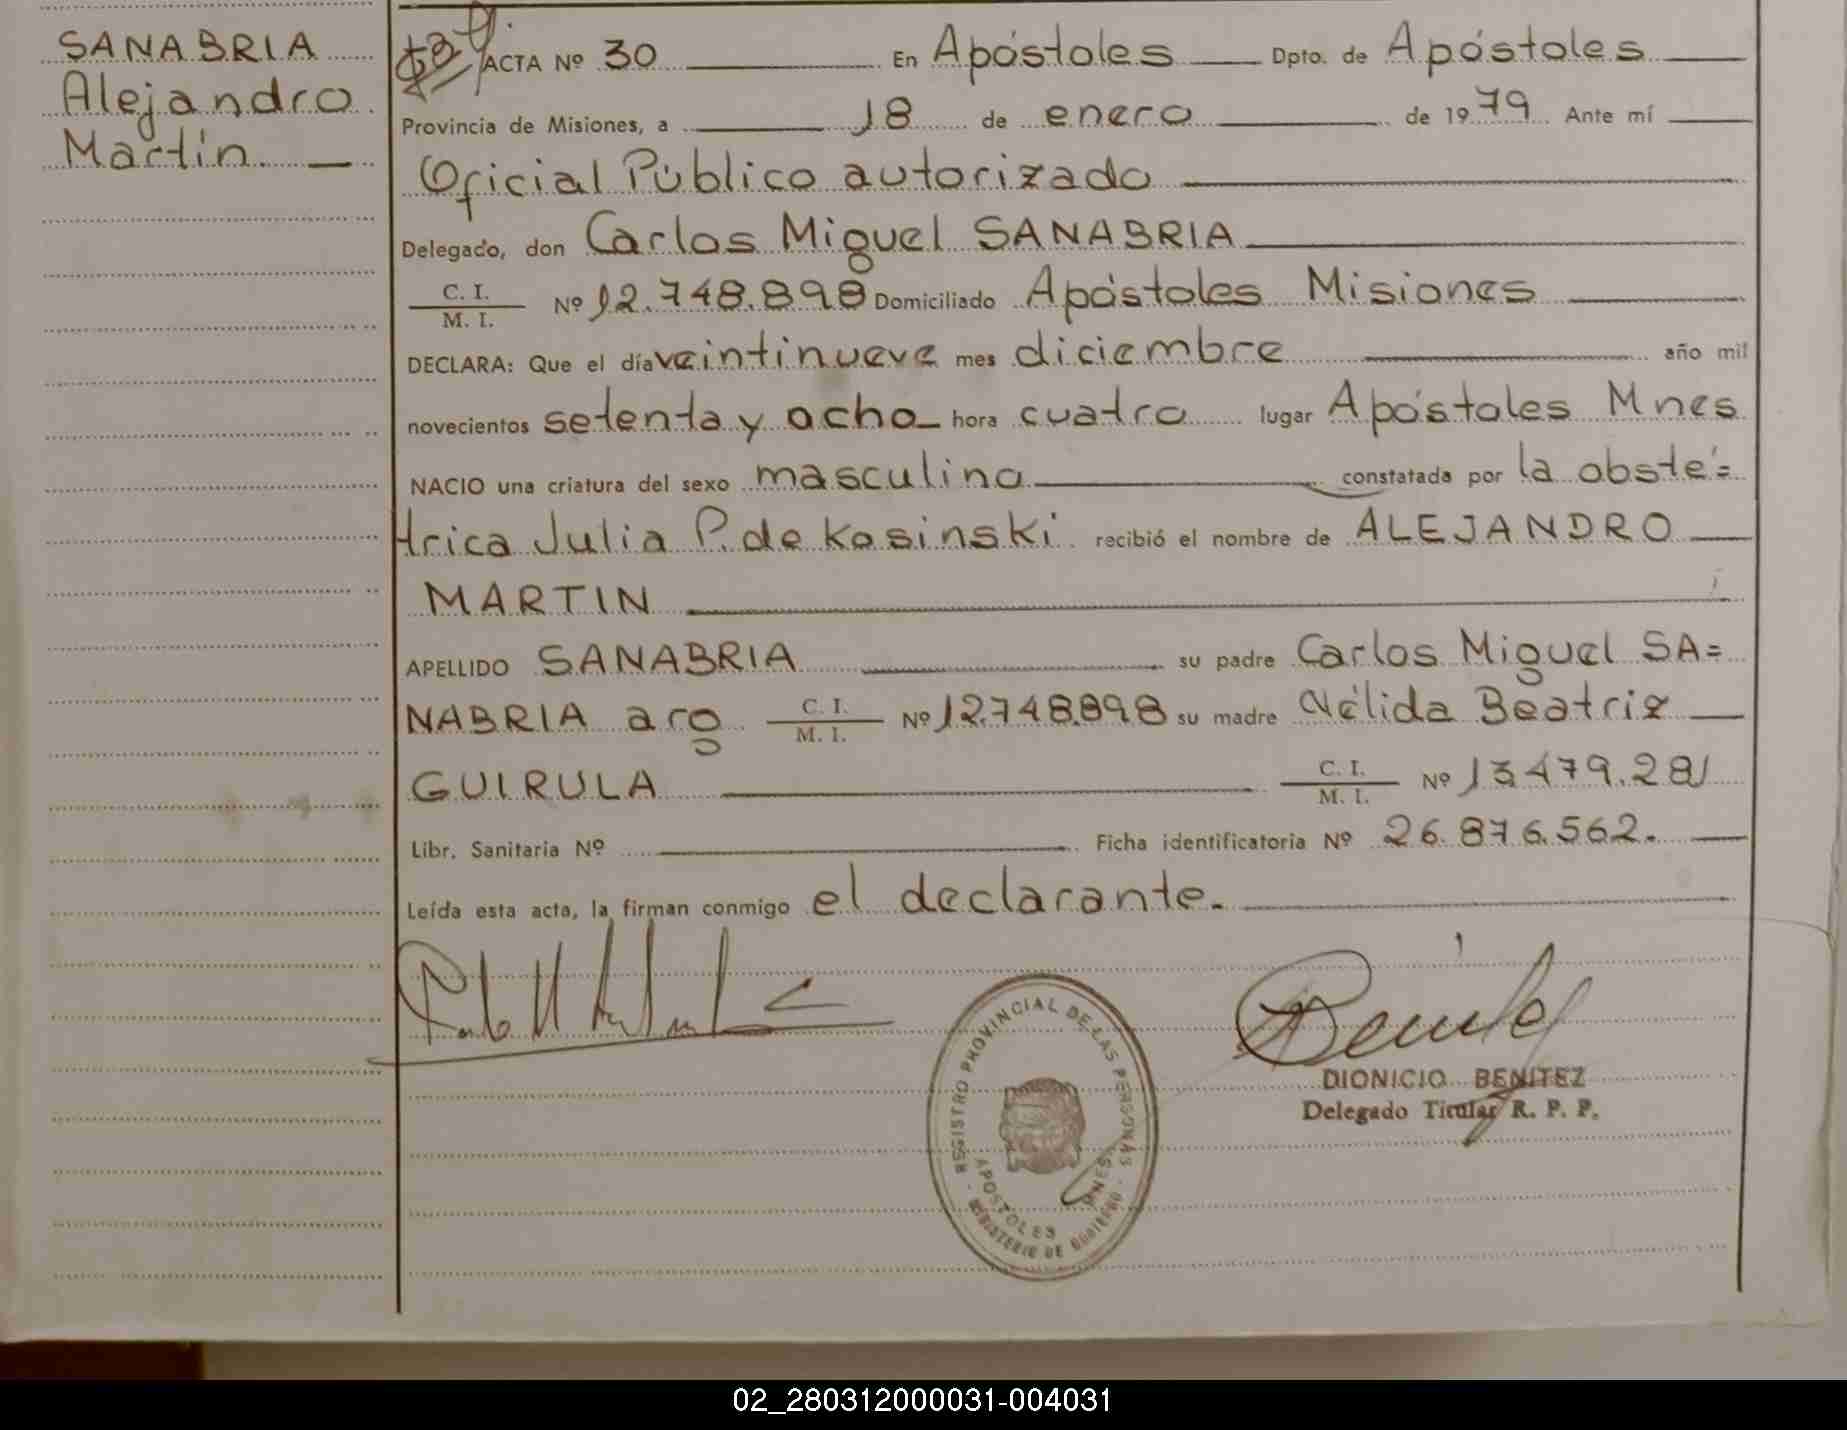 SANABRIA
Alejandro
Martín
ACTA Nº 30 En Apóstoles Dpto. de Apóstoles
Provincia de Misiones, a 18 de enero de 1979 Ante mí
Oficial Público autorizado
Delegado, don Carlos Miguel SANABRIA
C. I.
M. I. Nº 12.748.898 Domiciliado Apóstoles Misiones
DECLARA: Que el día veintinueve mes diciembre año mil
novecientos setenta y ocho hora cuatro lugar Apóstoles Mnes
NACIO una criatura del sexo masculino constatada por la obsté=
trica Julia P. de Kosinski recibió el nombre de ALEJANDRO
MARTIN
APELLIDO SANABRIA su padre Carlos Miguel SA=
NABRIA arg C. I.
M. I. Nº 12.748.898 su madre Nélida Beatriz
GUIRULA C. I.
M. I. Nº 13.479.281
Libr. Sanitaria Nº Ficha identificatoria Nº 26.876.562.
Leída esta acta, la firman conmigo el declarante.
REGISTRO PROVINCIAL DE LAS PERSONAS
APOSTOLES MNES.
MINISTERIO DE GOBIERNO
DIONICIO BENITEZ
Delegado Titular R. P. P.
02_280312000031-004031